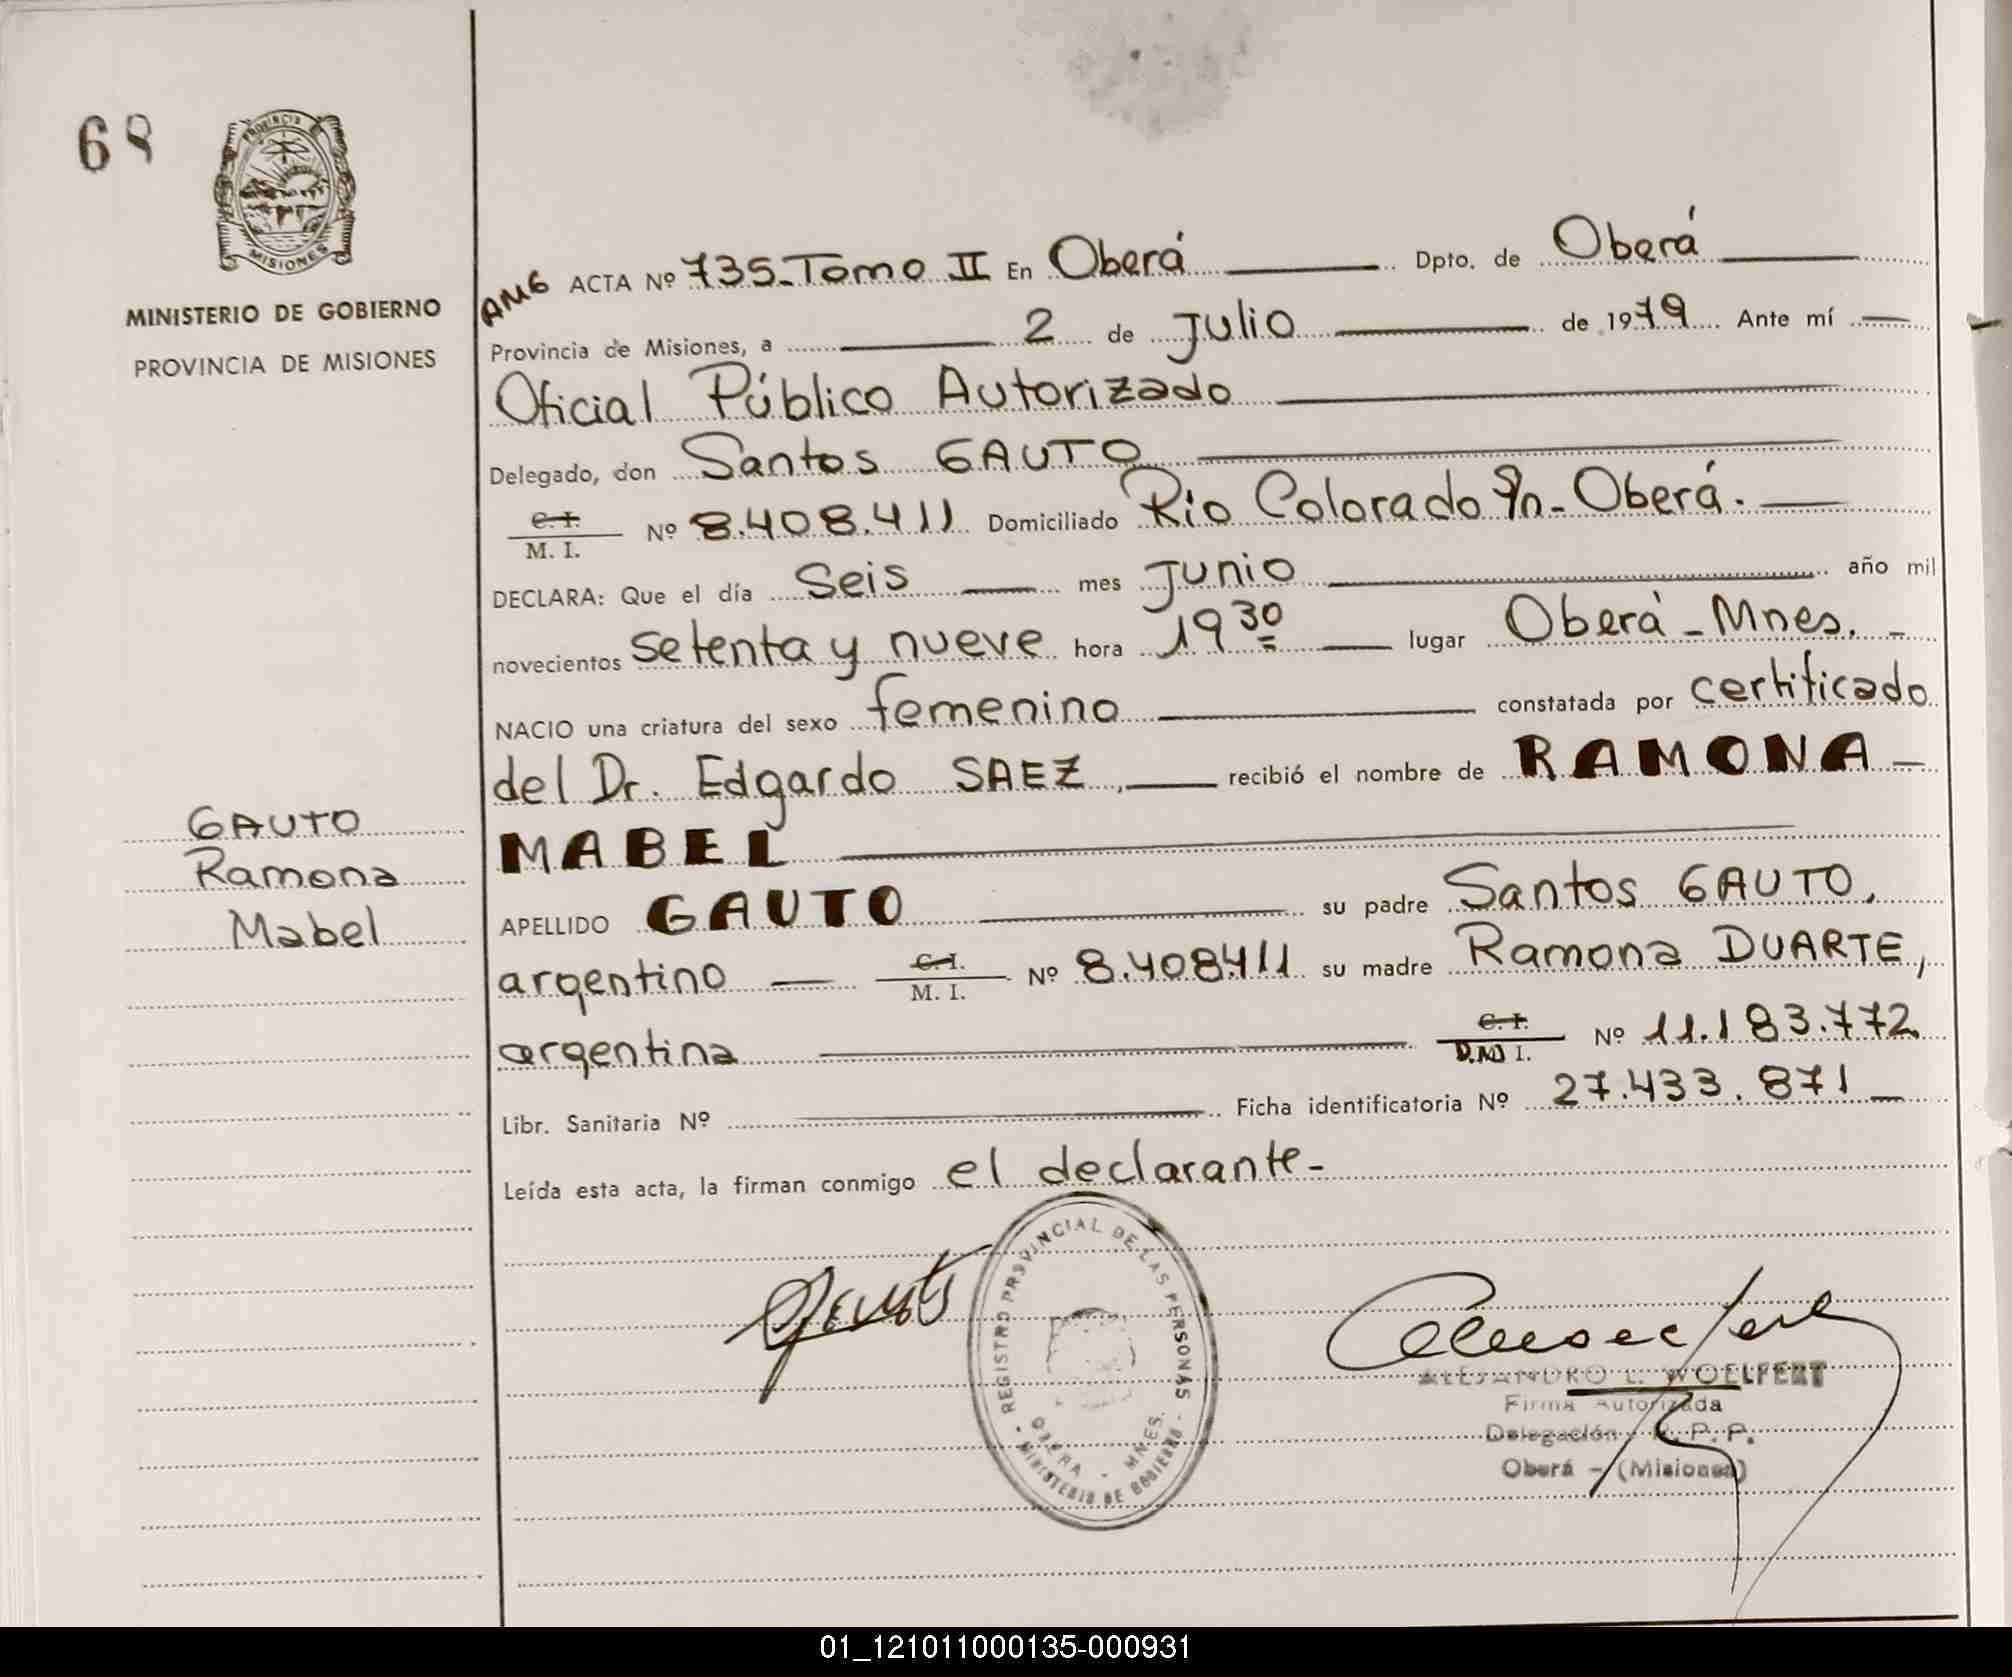 68
PROVINCIA DE
MISIONES
MINISTERIO DE GOBIERNO
PROVINCIA DE MISIONES
GAUTO
Ramona
Mabel
AMG ACTA Nº 735-Tomo II En Oberá Dpto. de Oberá
Provincia de Misiones, a 2 de Julio de 1979 Ante mí
Oficial Público Autorizado
Delegado, don Santos GAUTO
C. I.
M. I. Nº 8.408.411 Domiciliado Río Colorado - Oberá.
DECLARA: Que el día Seis mes Junio año mil
novecientos setenta y nueve hora 19 30 lugar Oberá - Mnes. -
NACIO una criatura del sexo femenino constatada por certificado
del Dr. Edgardo SAEZ, recibió el nombre de RAMONA
MABEL
APELLIDO GAUTO su padre Santos GAUTO,
argentino C.I. M. I. Nº 8.408411 su madre Ramona DUARTE,
argentina C.I. D.N I. Nº 11.183.772
Libr. Sanitaria Nº Ficha identificatoria Nº 27.433.871
Leída esta acta, la firman conmigo el declarante-
REGISTRO PROVINCIAL DE LAS PERSONAS
OBERA - MNES.
MINISTERIO DE GOBIERNO
ALEJANDRO L. WOELFERT
Firma Autorizada
Delegación R. P. P.
Oberá - (Misiones)
01_121011000135-000931